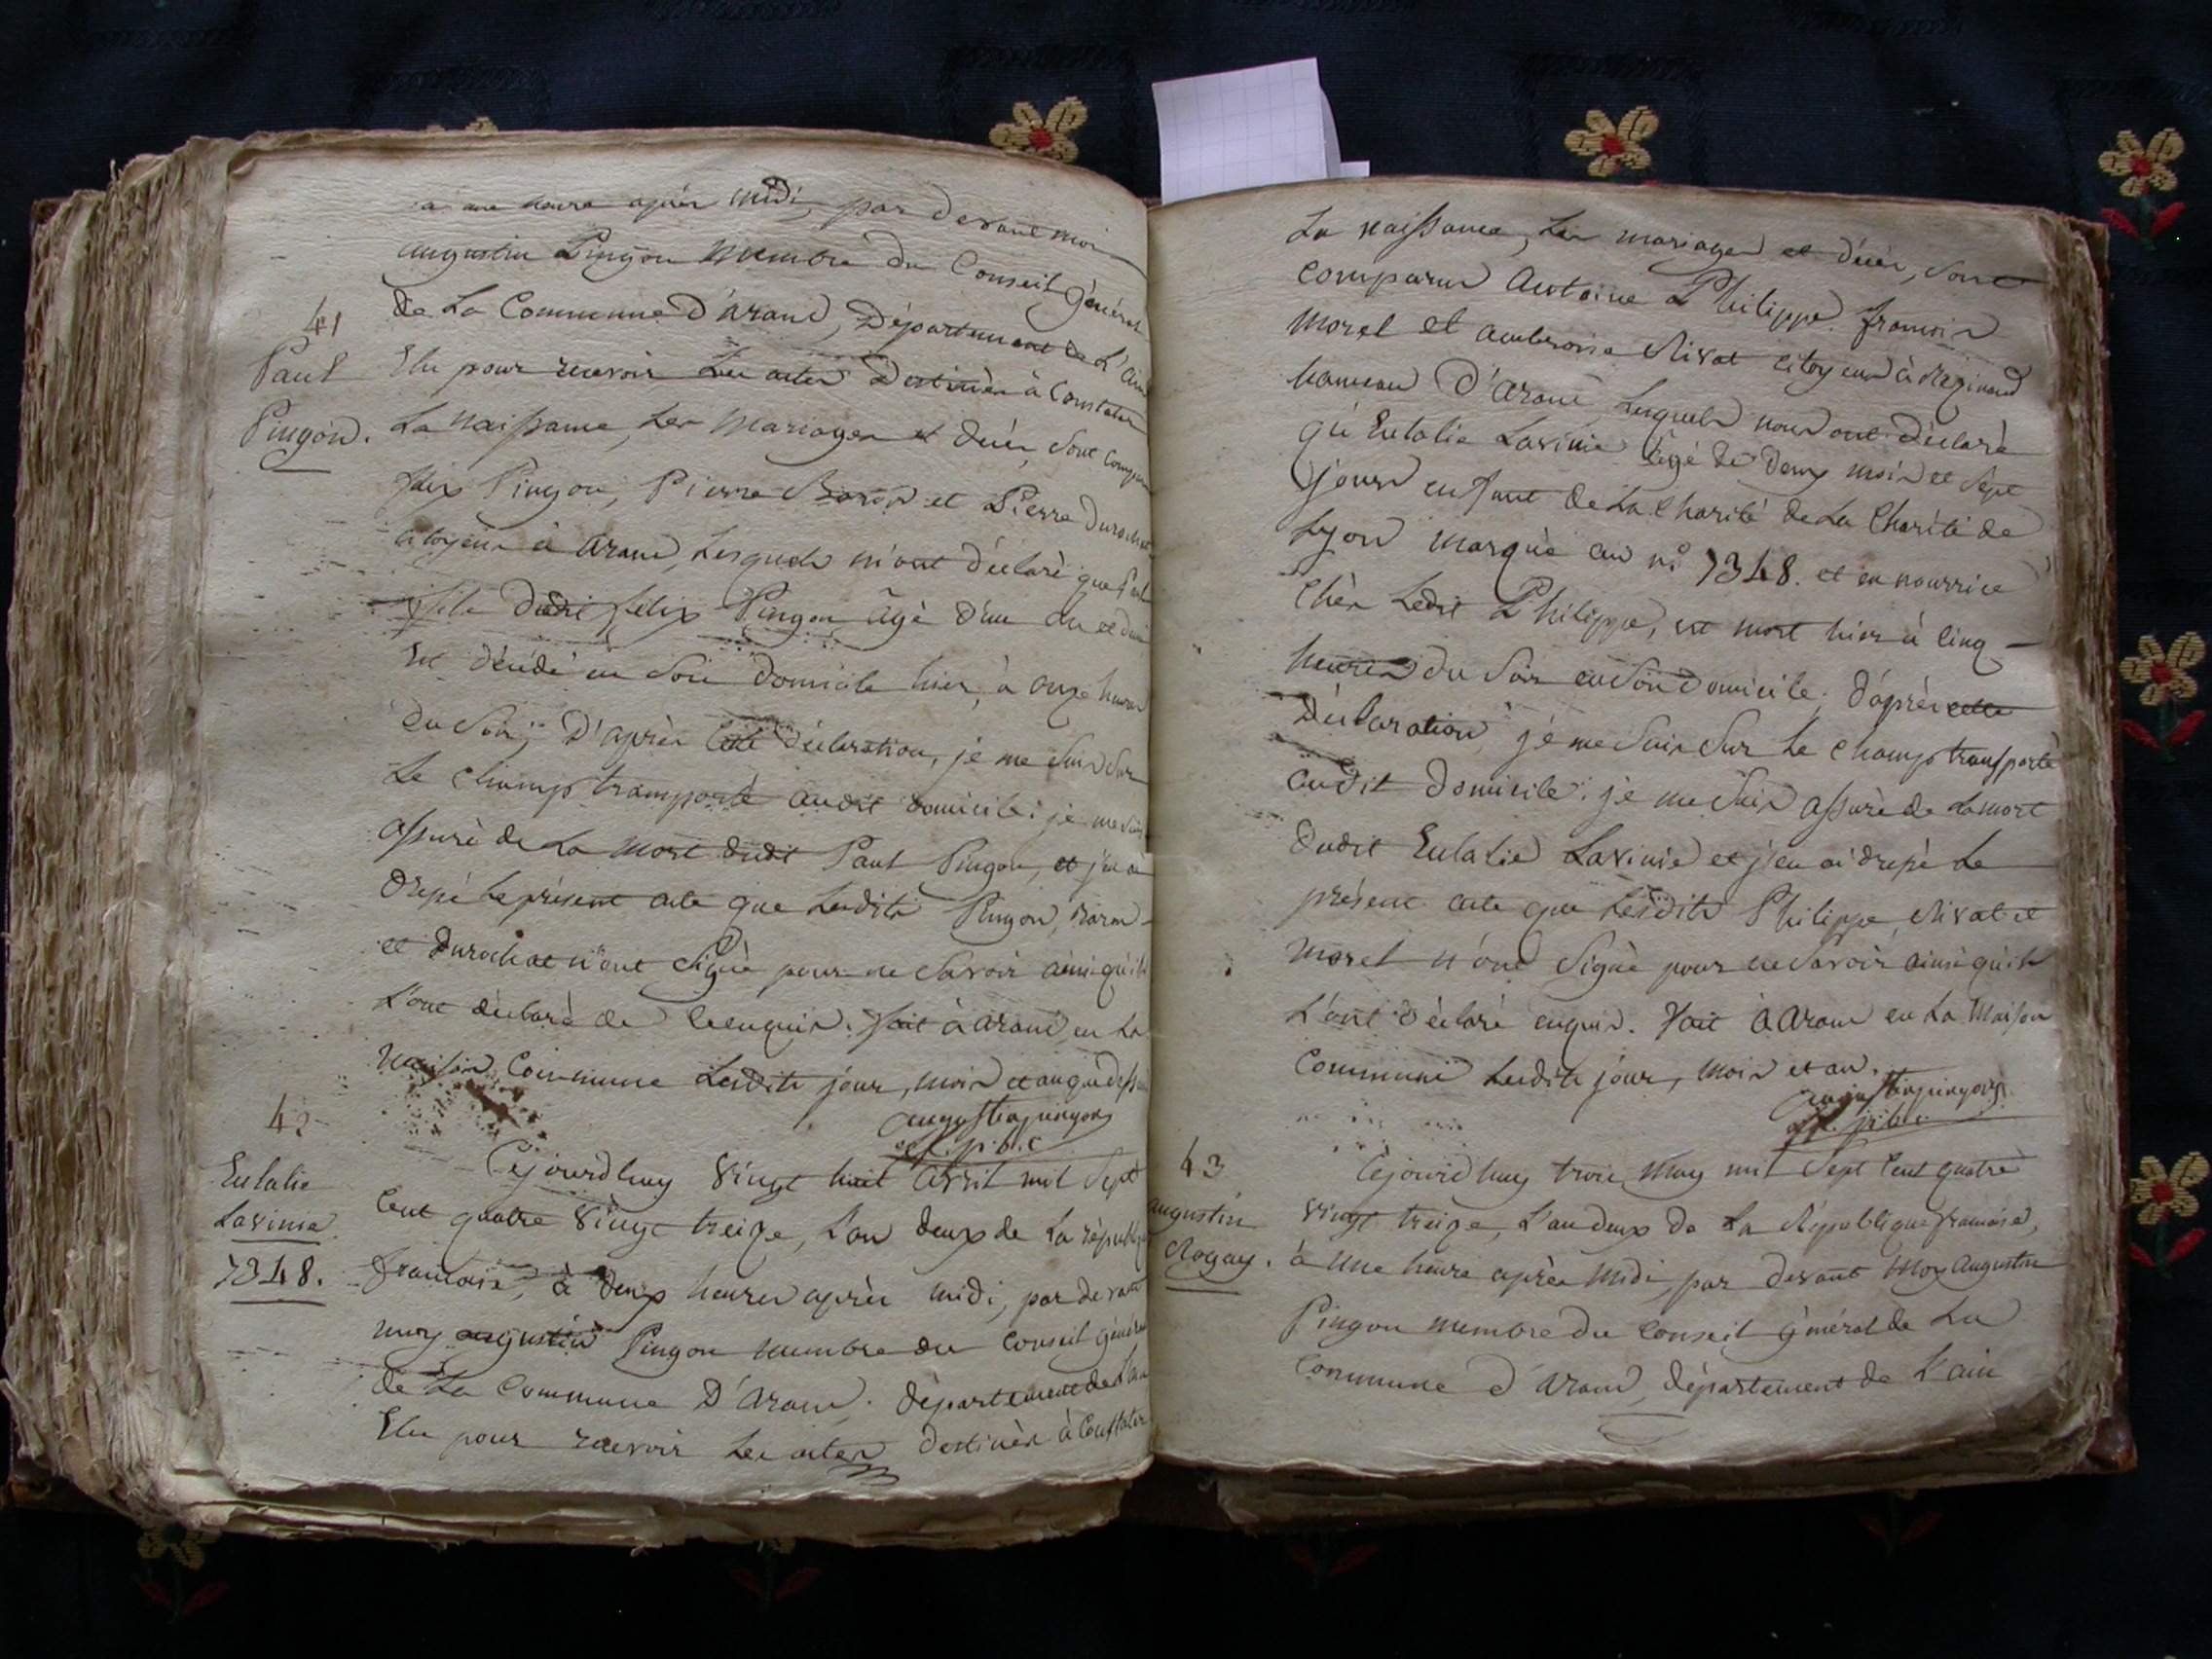 à une heure après midi, par devant moi
augustin Pingon membre du Conseil général
de La Commune d'arand, Département de L'ain
41
Elu pour recevoir Les actes Destinés à Constater
Paul
La naissance, Les mariages et décès, sont
Pingon.
felix Pingon, Pierre et Pierre Durochat
citoyens à arand, Lesquels m'ont déclaré que Paul
fils dudit felix Pingon âgé d'un an et demi
Est décédé en son domicile hier, à onze heures
du soir, D'après cette déclaration, je me suis sur
Le champs transporté audit domicile; je me suis
assuré de La mort dudit Paul Pingon, et j'en ai
drepé Le présent acte que Lesdits Pingon,
et Durochat n'ont signé pour ne savoir ainsi qu'ils
L'ont déclaré de ce enquis. fait à arand en La
maison Commune Lesdits jour, mois et an que dessus
augustin pingon
off. p.b.c
42
Cejourdhuy vingt huit avril mil sept
Eulalie
Cent quatre vingt treize, L'an deux de La république
Lavinie
7348.
francaise, à deux heures après midi, par devant
moy augustin Pingon membre du Conseil général
de La Commune D'arand. département de L'ain
Elu pour recevoir Les actes destinés à Constater
La naissance, Les mariages et décès, sont
comparus antoine Philippe. francois
morel et ambroise Rivat citoyens à Reginand
hameau D'arand Lesquels nous ont déclaré
qu'Eulalie Lavinie âgé de deux mois et sept
jours enfant de La Charité de La Charité de
Lyon marqué au n° 7348. et en nourrice
chés Ledit Philippe, est mort hier à cinq
heures du soir en son domicile; d'après cette
déclaration je me suis sur Le champs transporté
audit domicile. je me suis assuré de La mort
dudit Eulalie Lavinie et j'en ai drepé Le
présent acte que Lesdits Philippe, Rivat et
morel n'ont signé pour ne savoir ainsi qu'ils
L'ont déclaré enquis. fait à arand en La maison
Commune Lesdits jour, mois et an.
augustin pingon
off. p.b.c
43
Cejourdhuy trois may mil sept Cent quatre
augustin
vingt treize, L'an deux de La République francaise,
Rogay.
à une heure après midi, par devant moy augustin
Pingon membre du Conseil général de La
Commune d'arand, département de L'ain